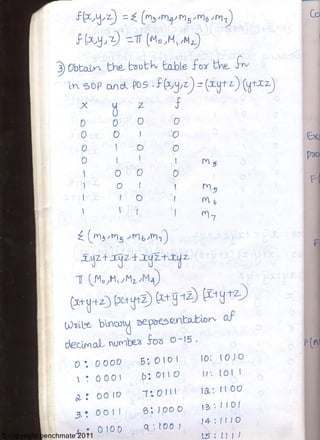 f(x,y,z) = Σ (m3,m4,m5,m6,m7)
f(x,y,z) = π (M0,M1,M2)
③ Obtain the truth table for the fn
in SOP and POS : f(x,y,z) = (xy+z)(y+xz)
x y z f
0 0 0 0
0 0 1 0
0 1 0 0
0 1 1 1 m3
1 0 0 0
1 0 1 1 m5
1 1 0 1 m6
1 1 1 1 m7
Σ (m3,m5,m6,m7)
x̄yz + xȳz + xyz̄ + xyz
π (M0,M1,M2,M4)
(x+y+z) (x+y+z̄) (x+ȳ+z) (x̄+y+z)
Write binary representation of
decimal number for 0-15.
0 : 0000 5 : 0101 10 : 1010
1 : 0001 6 : 0110 11 : 1011
2 : 0010 7 : 0111 12 : 1100
3 : 0011 8 : 1000 13 : 1101
4 : 0100 9 : 1001 14 : 1110
15 : 1111
benchmate 2011